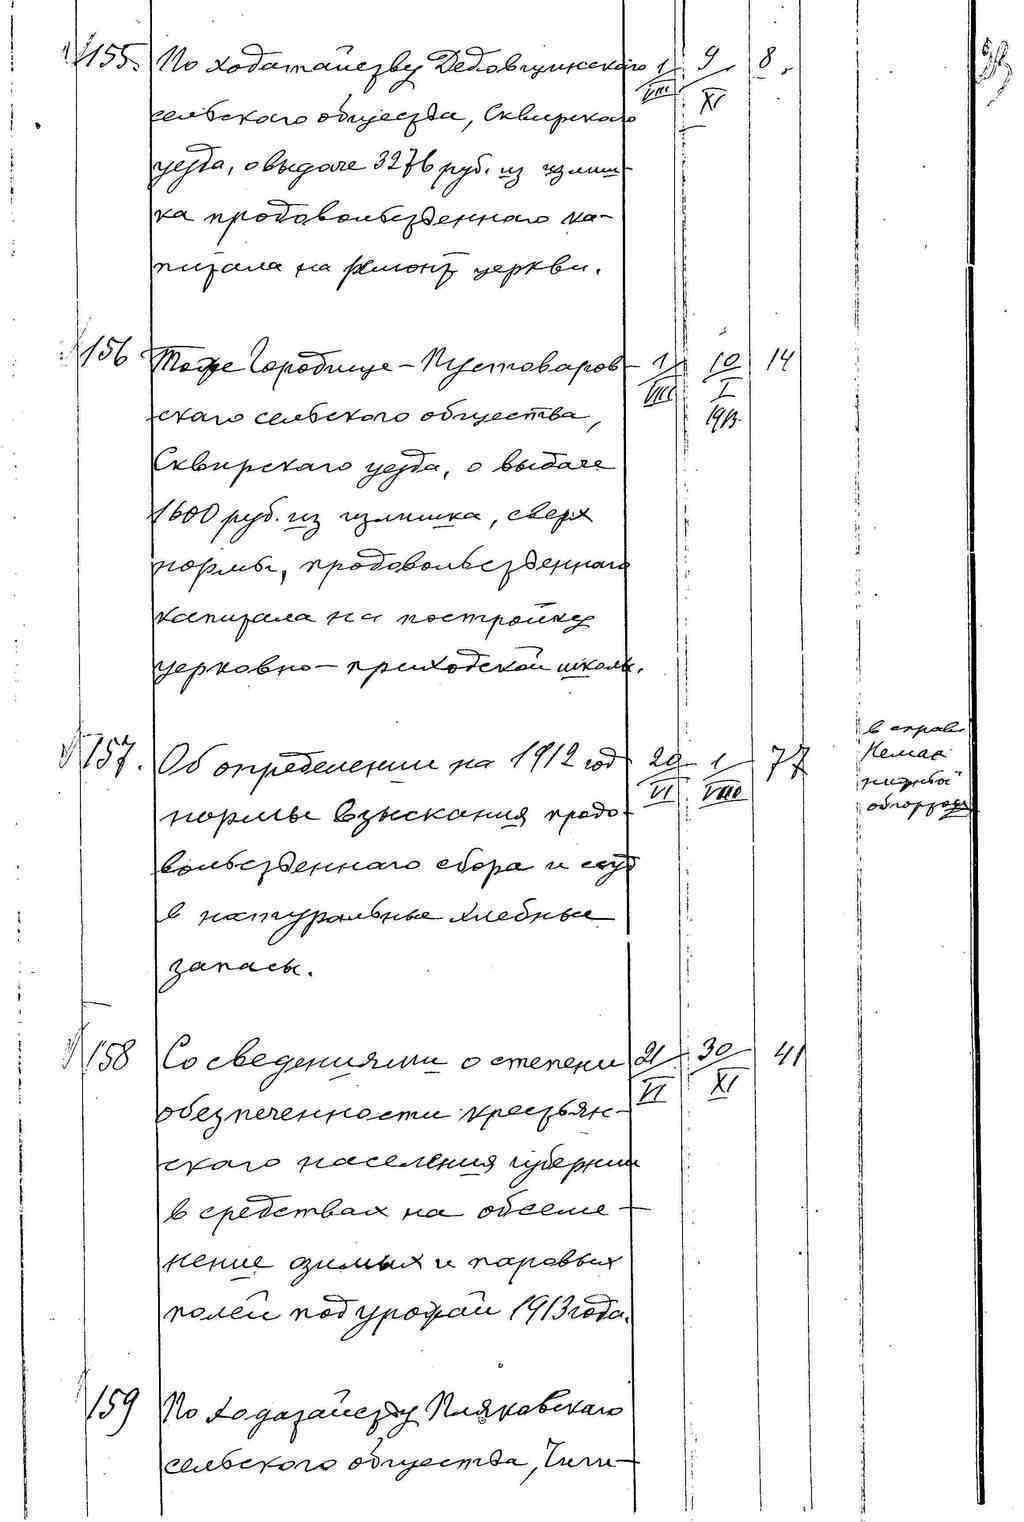 155. По ходатайству Дедовщинского 1/VIII 9/XI 8.
сельского общества, Сквирскаго
уезда, о выдаче 3276 руб. из излиш-
ка продовольственнаго ка-
питала на ремонт церкви.
156 Тоже Городище-Пустоваров- 1/VIII 10/I 1913 14
скаго сельского общества,
Сквирскаго уезда, о выдаче
1600 руб. из излишка, сверх
нормы, продовольственнаго
капитала на постройку
церковно-приходской школы.
157. Об определении на 1912 год 20/VI 1/VIII 77
нормы взыскания продо-
вольственнаго сбора и ссуд
в натуральные хлебные
запасы.
в справ.
158 Со сведениями о степени 21/VI 30/XI 41
обезпеченности крестьян-
скаго населения губернии
в средствах на обсеме-
нение озимых и паровых
полей под урожай 1913 года.
159 По ходатайству Пляковскаго
сельского общества, Чиги-